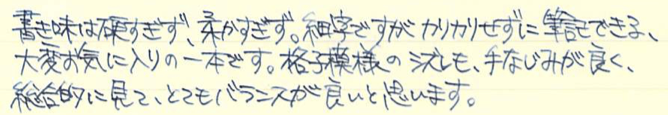 書き味は硬すぎず、柔かすぎず。細字ですがカリカリせずに筆記できる、
大変お気に入りの一本です。格子模様のシズレも、手なじみが良く、
総合的に見て、とてもバランスが良いと思います。